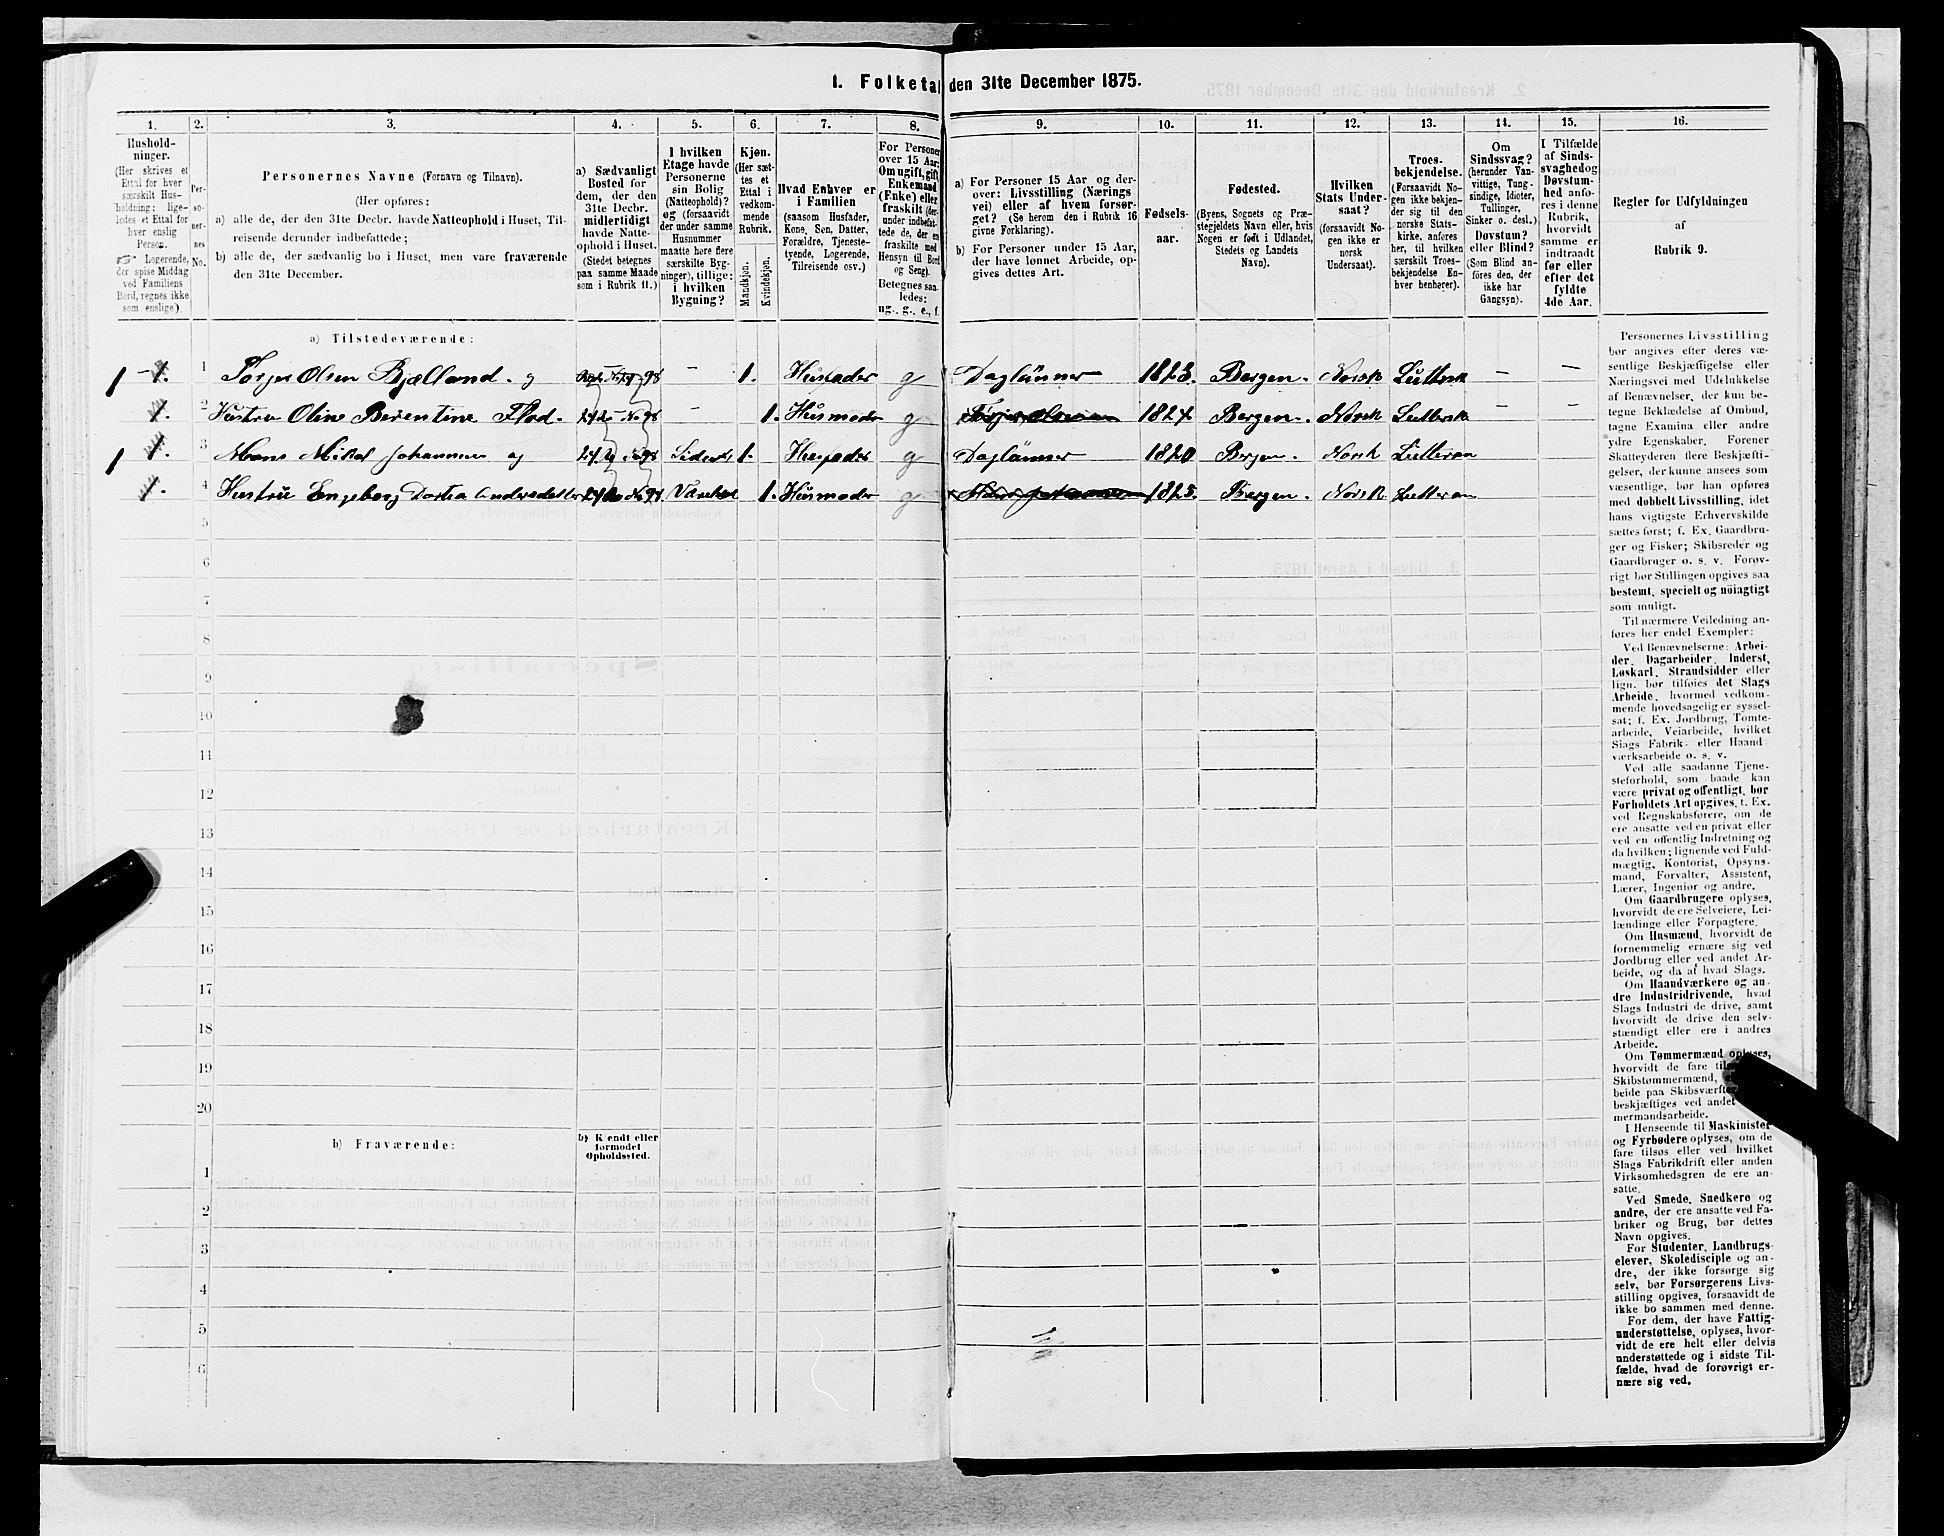 1. Folketal den 31te December 1875.
1. 2. 3. 4. 5. 6. 7. 8. 9. 10. 11. 12. 13. 14. 15. 16.
Hushold-
ninger.
(Her skrives et
Ettal for hver
særskilt Hus-
holdning: lige-
ledes et Ettal for
hver enslig
Person.
☞ Logerende,
der spise Middag
ved Familiens
Bord, regnes ikke
som enslige).
Per-
so-
ner-
nes
No.
Personernes Navne (Fornavn og Tilnavn).
(Her opføres:
a) alle de, der den 31te Decbr. havde Natteophold i Huset, Til-
reisende derunder indbefattede;
b) alle de, der sædvanlig bo i Huset, men vare fraværende
den 31te December.
a) Sædvanligt
Bosted for
dem, der den
31te Decbr.
midlertidigt
havde Natte-
ophold i Huset.
(Stedet betegnes
paa samme Maade
som i Rubrik 11.)
I hvilken
Etage havde
Personerne
sin Bolig
(Natteophold)?
og (forsaavidt
der under samme
Husnummer
maatte høre flere
særskilte Byg-
ninger), tillige:
i hvilken
Bygning?
Kjøn.
(Her sæt-
tes et
Ettal i
vedkom-
mende
Rubrik.
Mandkjøn.
Kvindekjøn.
Hvad Enhver er
i Familien
(saasom Husfader,
Kone, Søn, Datter,
Forældre, Tjeneste-
tyende, Logerende,
Tilreisende osv.)
For Personer
over 15 Aar;
Om ugift, gift,
Enkemand
(Enke) eller
fraskilt (der-
under indbefat-
tede de, der ere
fraskilte med
Hensyn til Bord
og Seng).
Betegnes saa-
ledes:
ug., g., e., f.
a) For Personer 15 Aar og der-
over: Livsstilling (Nærings
vei) eller af hvem forsør-
get? (Se herom den i Rubrik 16
givne Forklaring).
b) For Personer under 15 Aar,
der have lønnet Arbeide, op-
gives dettes Art.
Fødsels-
aar.
Fødested.
(Byens, Sognets og Præ-
stegjeldets Navn eller, hvis
Nogen er født i Udlandet,
Stedets og Landets
Navn).
Hvilken
Stats Under-
saat?
(forsaavidt No-
gen ikke er
norsk
Undersaat).
Troes-
bekjendelse.
(Forsaavidt No-
gen ikke bekjen-
der sig til den
norske Stats-
kirke, anføres
her, til hvilken
særskilt Troes-
bekjendelse En-
hver henhører).
Om
Sindssvag?
(herunder Van-
vittige, Tung-
sindige, Idioter,
Tullinger,
Sinker o. desl.)
Døvstum?
eller Blind?
(Som Blind an-
føres den, der
ikke har
Gangsyn).
I Tilfælde
af Sinds-
svaghed og
Døvstum-
hed anfø-
res i denne
Rubrik,
hvorvidt
samme er
indtraadt
før eller
efter det
fyldte
4de Aar.
Regler for Udfyldningen
af
Rubrik 9.
a) Tilstedeværende:
1 1. 1 Torjer Olsen Bjelland. og – 1. Husfader g Daglønner 1823. Bergen. Norsk Luttersk – –
1. 2 Hustru Oline Berentine Flod. – 1. Husmoder g 1824 Bergen. Norsk Luttersk
1 1. 3 Mons Mikal Johannsen og 1. Husfader g Daglønner 1820 Bergen. Norsk Lutteran
1. 4 Hustru Engeborg Dortea 1. Husmoder g 1825. Bergen. Norsk Lutteran
5
6
7
8
9
10
11
12
13
14
15
16
17
18
19
20
b) Fraværende:
b) Kjendt eller
formodet
Opholdssted.
1
2
3
4
5
6
Personernes Livsstilling
bør angives efter deres væ-
sentlige Beskjæftigelse eller
Næringsvei med Udelukkelse
af Benævnelser, der kun be-
tegne Beklædelse af Ombud,
tagne Examina eller andre
ydre Egenskaber. Forener
Skatteyderen flere Beskjæfti-
gelser, der kunne ansees som
væsentlige, bør han opføres
med dobbelt Livsstilling, idet
hans vigtigste Erhvervskilde
sættes først; f. Ex. Gaardbru-
ger og Fisker; Skibsreder og
Gaardbruger o. s. v. Forøv-
rigt bør Stillingen opgives saa
bestemt, specielt og nøiagtigt
som muligt.
Til nærmere Veiledning an-
føres her endel Exempler:
Ved Benævnelserne: Arbei-
der, Dagarbeider, Inderst,
Løskarl, Strandsidder eller
lign. bør tilføies det Slags
Arbeide, hvormed vedkom-
mende hovedsagelig er syssel-
sat; f. Ex. Jordbrug, Tomte-
arbeide, Veiarbeide, hvilket
Slags Fabrik- eller Haand-
værksarbeide o. s. v.
Ved alle saadanne Tjene-
steforhold, som baade kan
være privat og offentligt, bør
Forholdets Art opgives, t. Ex.
ved Regnskabsførere, om de
ere ansatte ved en privat eller
ved en offentlig Indretning og
da hvilken; lignende ved Fuld-
mægtig, Kontorist, Opsyns-
mand, Forvalter, Assistent,
Lærer, Ingeniør og andre.
Om Gaardbrugere oplyses,
hvorvidt de ere Selveiere, Lei-
lændinge eller Forpagtere.
Om Husmænd, hvorvidt de
fornemmelig ernære sig ved
Jordbrug eller ved andet Ar-
beide, og da af hvad Slags.
Om Haandværkere og an-
dre Industridrivende, hvad
Slags Industri de drive, samt
hvorvidt de drive den selv-
stændigt eller ere i andres
Arbeide.
Om Tømmermænd oplyses,
hvorvidt de fare
Skibstømmermænd,
beide paa
beskjæftiges ved andet
mermandsarbeide.
I Henseende til Maskinister
og Fyrbødere oplyses, om de
fare tilsøs eller ved hvilket
Slags Fabrikdrift eller anden
Virksomhedsgren de ere an-
satte.
Ved Smede, Snedkere og
andre, der ere ansatte ved Fa-
briker og Brug, bør dettes
Navn opgives.
For Studenter, Landbrugs-
elever, Skoledisciple og an-
dre, der ikke forsørge sig
selv, bør Forsørgerens Livs-
stilling opgives, forsaavidt de
ikke bo sammen med denne.
For dem, der have Fattig-
understøttelse, oplyses, hvor-
vidt de ere helt eller delvis
understøttede og i sidste Til-
fælde, hvad de forøvrigt er-
nære sig ved.